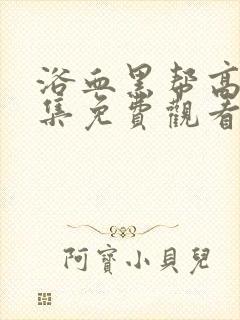 浴血黑帮高
集免費觀看
阿寶小貝兒